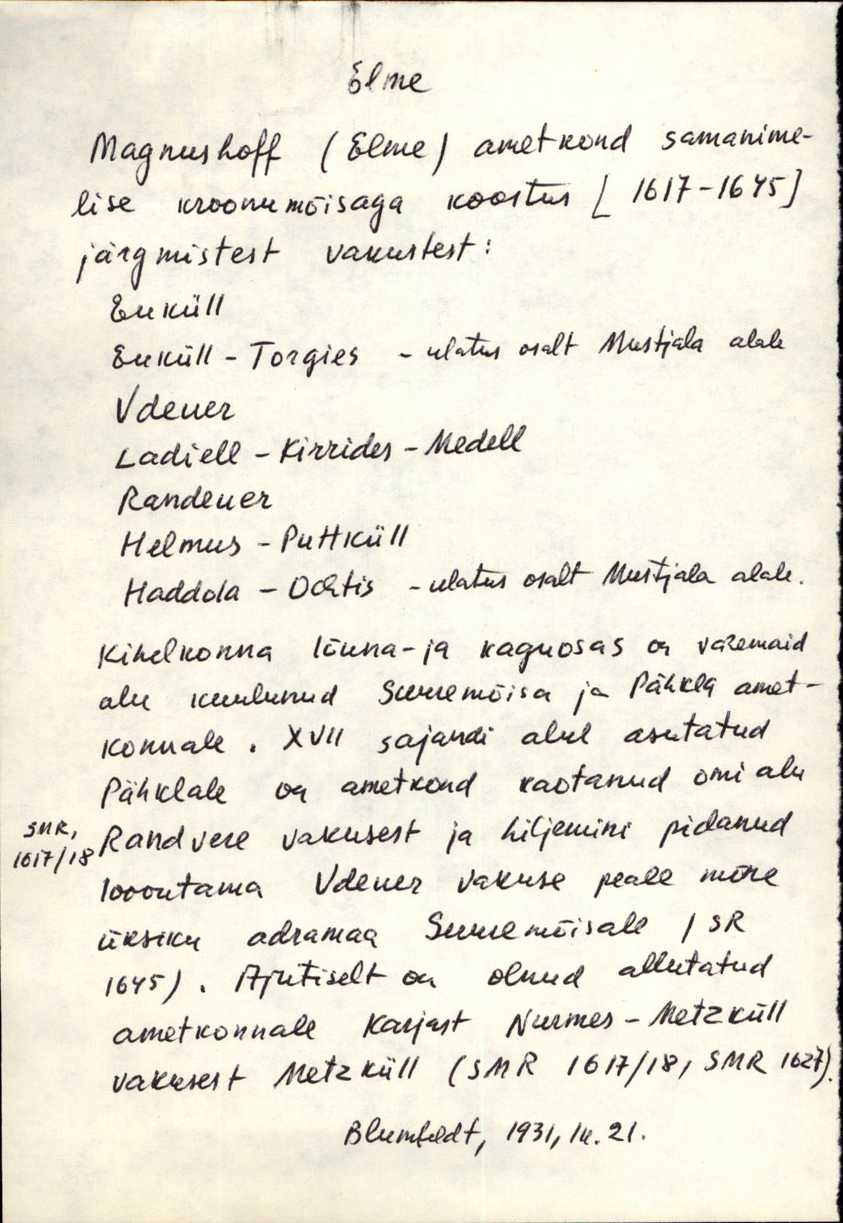 Elme
Magnushoff (Elme) ametkond samanime-
lise kroonumõisaga koostus [1617-1645]
järgmistest vakustest:
Euküll
Euküll - Torgies - ulatus osalt Mustjala alale
Vdeuer
Ladiell - Kirrides - Medell
Randeuer
Helmus - Puttküll
Haddola - Ochtis - ulatus osalt Mustjala alale.
Kihelkonna lõuna- ja kaguosas on varemaid
alu kuulunud Suuremõisa ja Pähkla amet-
konnale. XVII sajandi alul asutatud
Pähklale on ametkond kaotanud omi alu
SMR, 1617/18
Randvere vakusest ja hiljemini pidanud
loovutama Vdeuer vakuse peale mõne
üksiku adramaa Suuremõisale (SR
1645). Ajutiselt on olnud allutatud
ametkonnale Karjast Nurmes - Metzküll
vakusest Metzküll (SMR 1617/18, SMR 1627).
Blumfeldt, 1931, lk. 21.